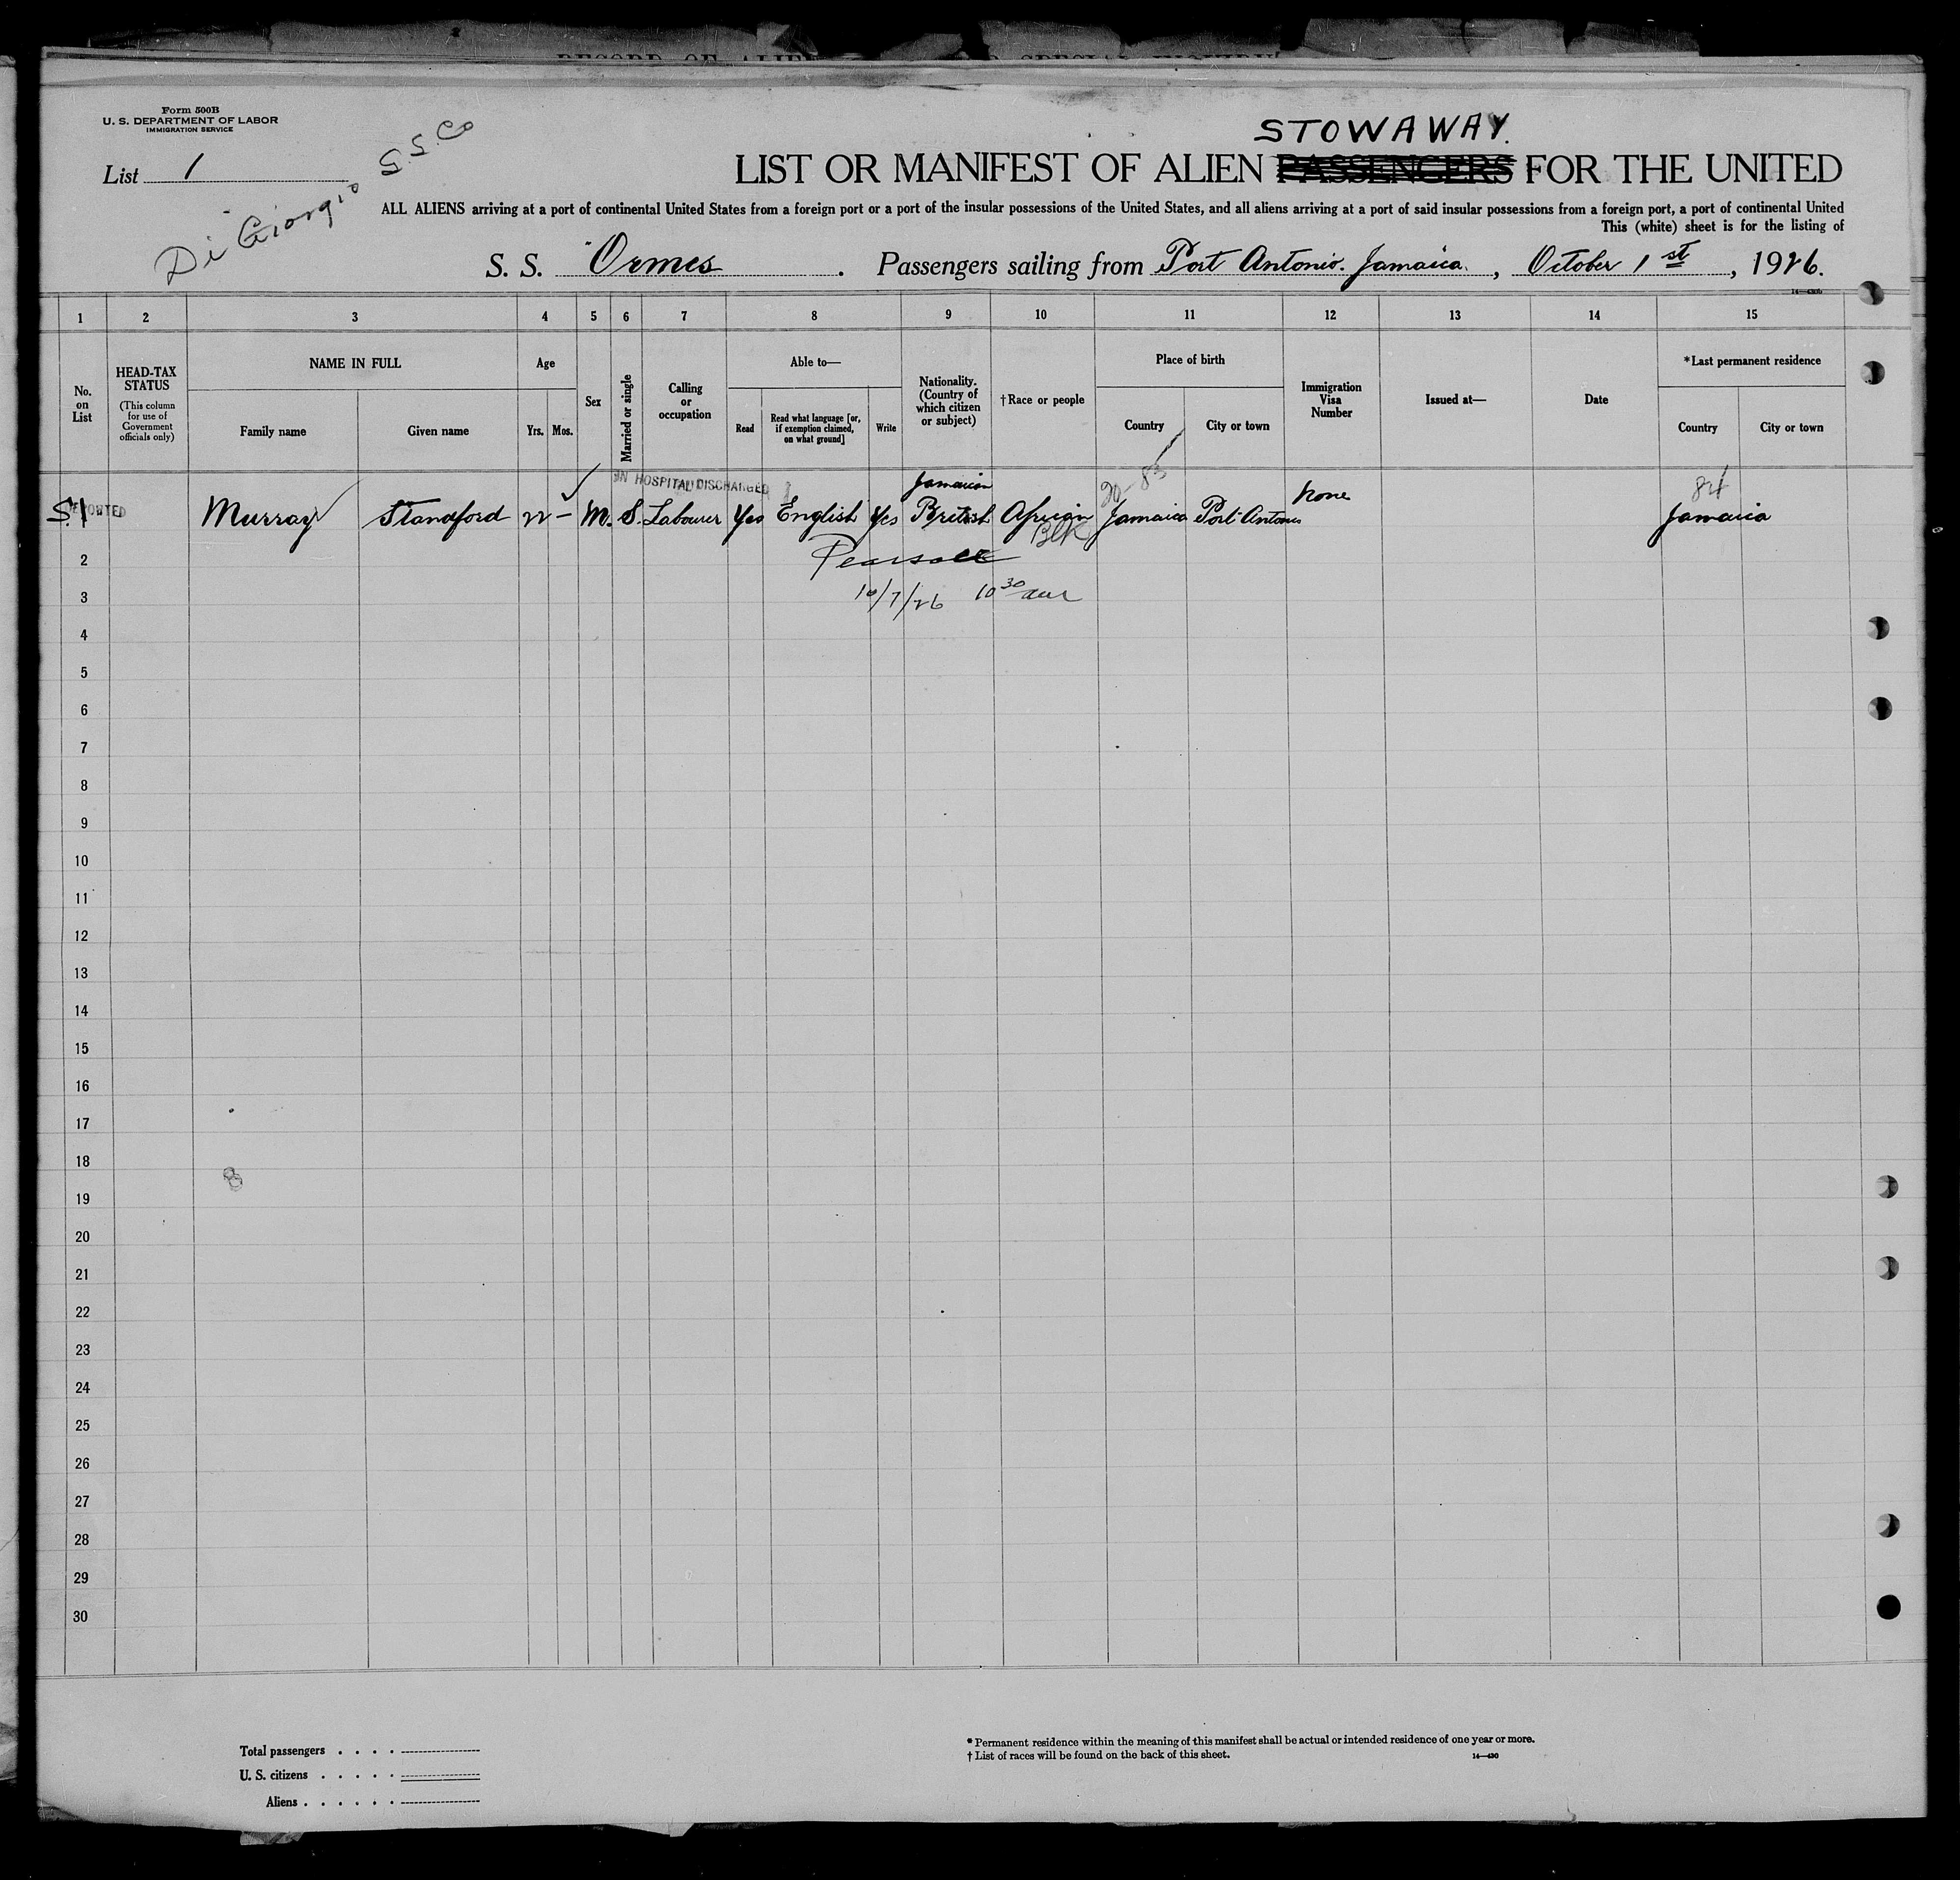 Form 500B
U. S. DEPARTMENT OF LABOR
IMMIGRATION SERVICE
List 1
Di Giorgio S.S. Co
STOWAWAY.
LIST OR MANIFEST OF ALIEN PASSENGERS FOR THE UNITED
ALL ALIENS arriving at a port of continental United States from a foreign port or a port of the insular possessions of the United States, and all aliens arriving at a port of said insular possessions from a foreign port, a port of continental United
This (white) sheet is for the listing of
S. S. Ormes. Passengers sailing from Port Antonio. Jamaica., October 1st, 1926.
1 2 3 4 5 6 7 8 9 10 11 12 13 14 15
No. on List
HEAD-TAX STATUS
(This column for use of Government officials only)
NAME IN FULL
Family name Given name
Age
Yrs. Mos.
Sex
Married or single
Calling or occupation
Able to—
Read
Read what language [or, if exemption claimed, on what ground]
Write
Nationality. (Country of which citizen or subject)
†Race or people
Place of birth
Country City or town
Immigration Visa Number
Issued at—
Date
*Last permanent residence
Country City or town
IN HOSPITAL DISCHARGED
Jamaican
20-83
84
S. 1 Murray Standford 22 - M. S. Labourer Yes English Yes British African Jamaica Port Antonio None Jamaica
Blk
2 Pearsall
3 10/7/26 10 30 am
4
5
6
7
8
9
10
11
12
13
14
15
16
17
18
19
20
21
22
23
24
25
26
27
28
29
30
Total passengers . . . .
U. S. citizens . . . . .
Aliens . . . . . .
* Permanent residence within the meaning of this manifest shall be actual or intended residence of one year or more.
† List of races will be found on the back of this sheet.
14—430